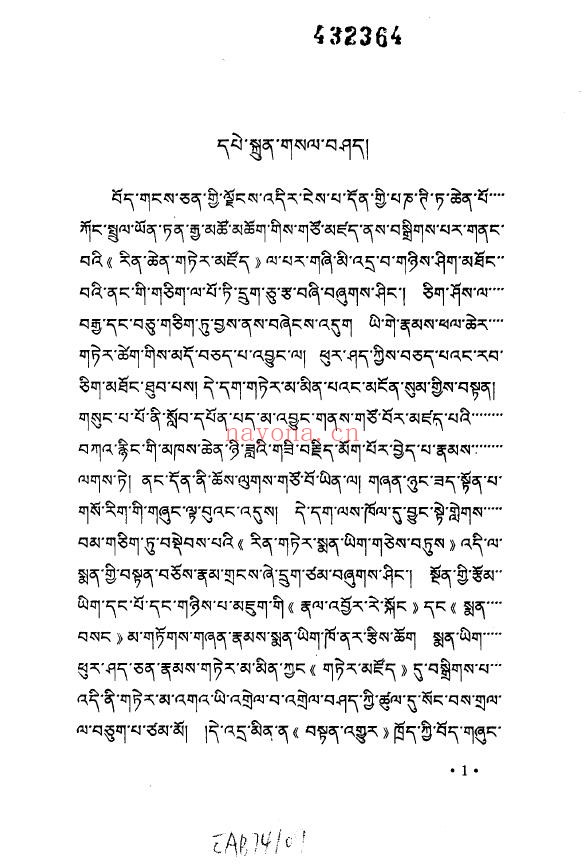 432364
དཔེ་སྐྲུན་གསལ་བཤད།
བོད་གངས་ཅན་གྱི་ལྗོངས་འདིར་ངེས་པ་དོན་གྱི་པཎྜི་ཏ་ཆེན་པོ་
ཀོང་སྤྲུལ་ཡོན་ཏན་རྒྱ་མཚོ་མཆོག་གིས་གཙོ་མཛད་ནས་བསྒྲིགས་པར་གནང་
བའི《 རིན་ཆེན་གཏེར་མཛོད 》ལ་པར་གཞི་མི་འདྲ་བ་གཉིས་ཤིག་མཐོང་
བའི་ནང་གི་གཅིག་ལ་པོ་ཏི་དྲུག་ཅུ་རྩ་བཞི་བཞུགས་ཤིང་། ཅིག་ཤོས་ལ་
བརྒྱ་དང་བཅུ་གཅིག་ཏུ་བྱས་ནས་བཞེངས་འདུག ཡི་གེ་རྣམས་ཕལ་ཆེར་
གཏེར་ཚེག་གིས་མདོ་བཅད་པ་འབྱུང་ལ། ཕུར་ཤད་ཀྱིས་བཅད་པའང་རབ་
ཅིག་མཐོང་ཐུབ་པས། དེ་དག་གཏེར་མ་མིན་པའང་མངོན་སུམ་གྱིས་བསྟན།
གསུང་པ་པོ་ནི་སློབ་དཔོན་པད་མ་འབྱུང་གནས་གཙོ་བོར་མཛད་པའི་
བཀའ་རྙིང་གི་མཁས་ཆེན་ཉི་ཟླའི་གཟི་བརྗིད་མོག་པོར་བྱེད་པ་རྣམས་
ལགས་ཏེ། ནང་དོན་ནི་ཆོས་ལུགས་གཙོ་བོ་ཡིན་ལ། གཞན་ཉུང་ཟད་སྟོན་པ་
གསོ་རིག་གི་གཞུང་ལྟ་བུའང་འདུས། དེ་དག་ལས་ཁོལ་དུ་བྱུང་སྟེ་གླེགས་
བམ་གཅིག་ཏུ་བསྡེབས་པའི《 རིན་གཏེར་སྨན་ཡིག་གཅེས་བཏུས 》འདི་ལ་
སྨན་གྱི་བསྟན་བཅོས་རྣམ་གྲངས་ཞེ་དྲུག་ཙམ་བཞུགས་ཤིང་། སྔོན་གྱི་རྩོམ་
ཡིག་དང་པོ་དང་གཉིས་པ་མཇུག་གི《 རྣལ་འབྱོར་རེ་སྐོང 》དང《 སྨན་
བསང 》མ་གཏོགས་གཞན་རྣམས་སྨན་ཡིག་ཁོ་ནར་རྩིས་ཆོག སྨན་ཡིག་
ཕུར་ཤད་ཅན་རྣམས་གཏེར་མ་མིན་ཀྱང《 གཏེར་མཛོད 》དུ་བསྒྲིགས་པ་
འདི་ནི་གཏེར་མ་འགའ་ཡི་འགྲེལ་བ་འགྲེལ་བཤད་ཀྱི་ཚུལ་དུ་སོང་བས་གྲལ་
ལ་བཅུག་པ་ཙམ་མོ། །དེ་འདྲ་མིན་ན《 བསྟན་འགྱུར 》ཁྲོད་ཀྱི་བོད་གཞུང་
nayona.cn
· 1 ·